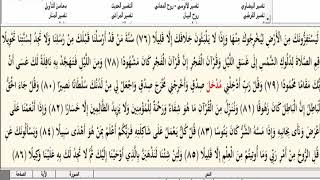 تفسير البيضاوي تفسير الألوسي - روح المعاني التفسير الحديث محاسن التأويل
تفسير القرطبي روح البيان تفسير المراغي تفسير المنار
لَيَسْتَفِزُّونَكَ مِنَ الْأَرْضِ لِيُخْرِجُوكَ مِنْهَا وَإِذًا لَا يَلْبَثُونَ خِلَافَكَ إِلَّا قَلِيلًا (٧٦) سُنَّةَ مَنْ قَدْ أَرْسَلْنَا قَبْلَكَ مِنْ رُسُلِنَا وَلَا تَجِدُ لِسُنَّتِنَا تَحْوِيلًا
قِمِ الصَّلَاةَ لِدُلُوكِ الشَّمْسِ إِلَى غَسَقِ اللَّيْلِ وَقُرْآنَ الْفَجْرِ إِنَّ قُرْآنَ الْفَجْرِ كَانَ مَشْهُودًا (٧٨) وَمِنَ اللَّيْلِ فَتَهَجَّدْ بِهِ
مَقَامًا مَحْمُودًا (٧٩) وَقُلْ رَبِّ أَدْخِلْنِي مُدْخَلَ صِدْقٍ وَأَخْرِجْنِي مُخْرَجَ صِدْقٍ وَاجْعَلْ لِي مِنْ لَدُنْكَ سُلْطَانًا نَصِيرًا (٨٠) وَقُلْ جَاءَ الْحَقُّ
الْبَاطِلَ كَانَ زَهُوقًا (٨١) وَنُنَزِّلُ مِنَ الْقُرْآنِ مَا هُوَ شِفَاءٌ وَرَحْمَةٌ لِلْمُؤْمِنِينَ وَلَا يَزِيدُ الظَّالِمِينَ إِلَّا خَسَارًا (٨٢) وَإِذَا أَنْعَمْنَا عَلَى
عْرَضَ وَنَأَى بِجَانِبِهِ وَإِذَا مَسَّهُ الشَّرُّ كَانَ يَئُوسًا (٨٣) قُلْ كُلٌّ يَعْمَلُ عَلَى شَاكِلَتِهِ فَرَبُّكُمْ أَعْلَمُ بِمَنْ هُوَ أَهْدَى سَبِيلًا (٨٤) وَيَسْأَلُونَكَ عَنِ
قُلِ الرُّوحُ مِنْ أَمْرِ رَبِّي وَمَا أُوتِيتُمْ مِنَ الْعِلْمِ إِلَّا قَلِيلًا (٨٥) وَلَئِنْ شِئْنَا لَنَذْهَبَنَّ بِالَّذِي أَوْحَيْنَا إِلَيْكَ ثُمَّ لَا تَجِدُ لَكَ بِهِ عَلَيْنَا وَكِيلًا (٨٦)
النص السورة آية الصفحة